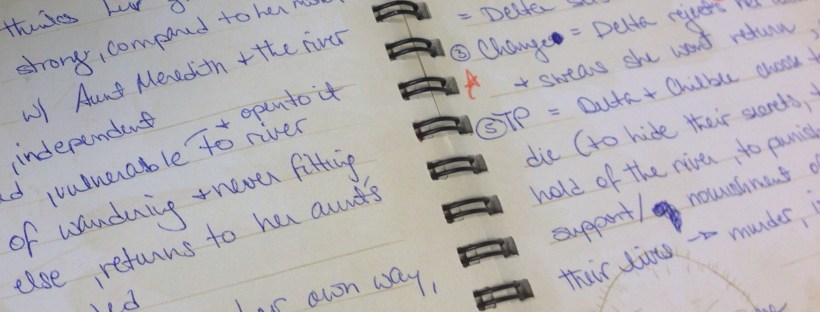 thinks her
strong, compared to her
w/ Aunt Meredith + the river
, independent
+ open to it
, vulnerable to river
of wandering + never fitting
else, returns to her aunt's
own way,
= Delta
② Change = Delta rejects her
+ swears she won't return
⑤ TP = Delta + Chilbee choose
die (to hide their secrets,
hold of the river, to punish
support/ nourishment of
their lives → murder,